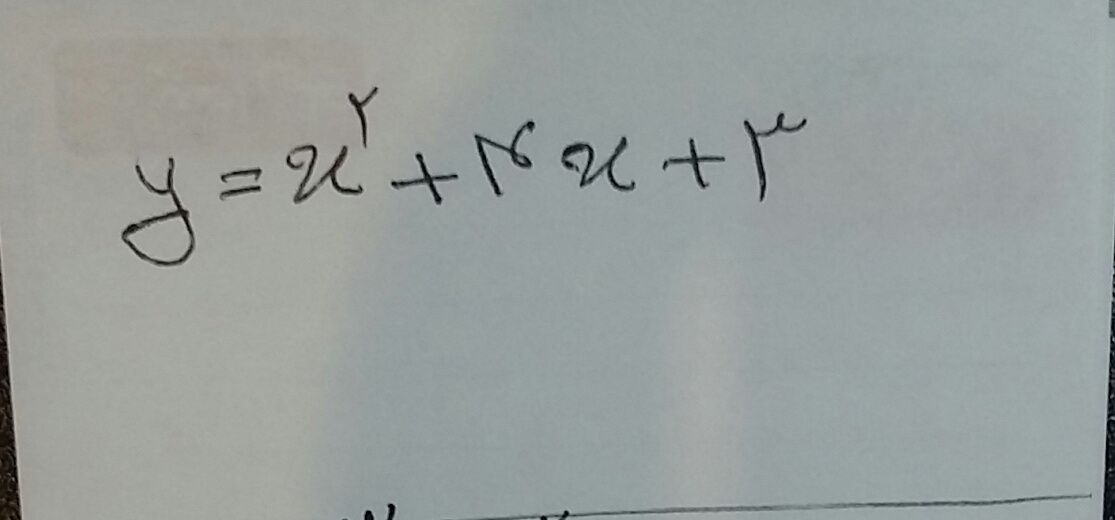 y = x^۲ + ۴x + ۳